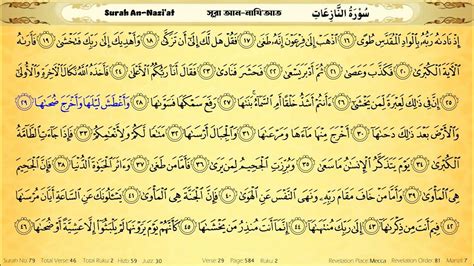 Surah An-Nazi'at সূরা আন-নাযি'আত سُورَةُ النَّازِعَاتِ
إِذْ نَادَىٰهُ رَبُّهُۥ بِالْوَادِ الْمُقَدَّسِ طُوًى ١٦ اذْهَبْ إِلَىٰ فِرْعَوْنَ إِنَّهُۥ طَغَىٰ ١٧ فَقُلْ هَل لَّكَ إِلَىٰٓ أَن تَزَكَّىٰ ١٨ وَأَهْدِيَكَ إِلَىٰ رَبِّكَ فَتَخْشَىٰ ١٩ فَأَرَىٰهُ
الْآيَةَ الْكُبْرَىٰ ٢٠ فَكَذَّبَ وَعَصَىٰ ٢١ ثُمَّ أَدْبَرَ يَسْعَىٰ ٢٢ فَحَشَرَ فَنَادَىٰ ٢٣ فَقَالَ أَنَا۠ رَبُّكُمُ الْأَعْلَىٰ ٢٤ فَأَخَذَهُ اللَّهُ نَكَالَ الْآخِرَةِ وَالْأُولَىٰٓ
٢٥ إِنَّ فِى ذَٰلِكَ لَعِبْرَةً لِّمَن يَخْشَىٰٓ ٢٦ ءَأَنتُمْ أَشَدُّ خَلْقًا أَمِ السَّمَآءُ ۚ بَنَىٰهَا ٢٧ رَفَعَ سَمْكَهَا فَسَوَّىٰهَا ٢٨ وَأَغْطَشَ لَيْلَهَا وَأَخْرَجَ ضُحَىٰهَا ٢٩
وَالْأَرْضَ بَعْدَ ذَٰلِكَ دَحَىٰهَآ ٣٠ أَخْرَجَ مِنْهَا مَآءَهَا وَمَرْعَىٰهَا ٣١ وَالْجِبَالَ أَرْسَىٰهَا ٣٢ مَتَٰعًا لَّكُمْ وَلِأَنْعَٰمِكُمْ ٣٣ فَإِذَا جَآءَتِ الطَّآمَّةُ
الْكُبْرَىٰ ٣٤ يَوْمَ يَتَذَكَّرُ الْإِنسَٰنُ مَا سَعَىٰ ٣٥ وَبُرِّزَتِ الْجَحِيمُ لِمَن يَرَىٰ ٣٦ فَأَمَّا مَن طَغَىٰ ٣٧ وَءَاثَرَ الْحَيَوٰةَ الدُّنْيَا ٣٨ فَإِنَّ الْجَحِيمَ
هِىَ الْمَأْوَىٰ ٣٩ وَأَمَّا مَنْ خَافَ مَقَامَ رَبِّهِۦ وَنَهَى النَّفْسَ عَنِ الْهَوَىٰ ٤٠ فَإِنَّ الْجَنَّةَ هِىَ الْمَأْوَىٰ ٤١ يَسْـَٔلُونَكَ عَنِ السَّاعَةِ أَيَّانَ مُرْسَىٰهَا
٤٢ فِيمَ أَنتَ مِن ذِكْرَىٰهَآ ٤٣ إِلَىٰ رَبِّكَ مُنتَهَىٰهَآ ٤٤ إِنَّمَآ أَنتَ مُنذِرُ مَن يَخْشَىٰهَا ٤٥ كَأَنَّهُمْ يَوْمَ يَرَوْنَهَا لَمْ يَلْبَثُوٓا۟ إِلَّا عَشِيَّةً أَوْ ضُحَىٰهَا ٤٦
Surah No: 79 Total Verse: 46 Total Ruku: 2 Hizb: 59 Juzz: 30 Verse: 29 Page: 584 Ruku: 2 Revelation Place: Mecca Revelation Order: 81 Manzil: 7